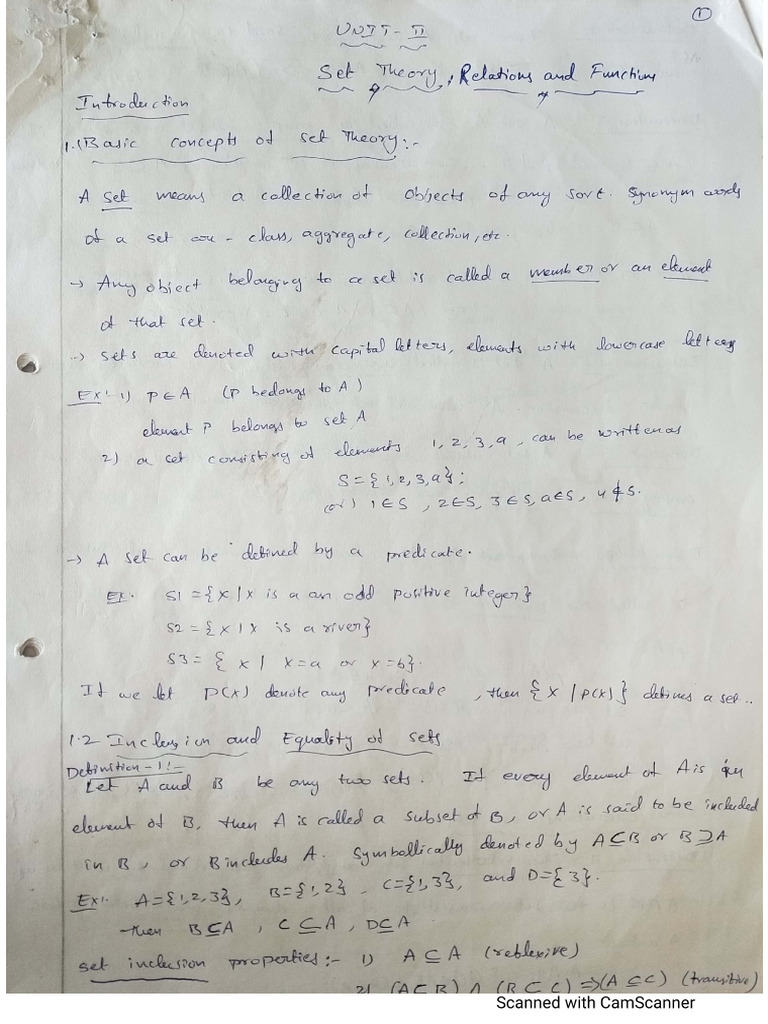 1
UNIT-II
Set Theory, Relations and Functions
Introduction
1.1 Basic concepts of set Theory:-
A set means a collection of objects of any sort. Synonym words
of a set are - class, aggregate, collection, etc.
→ Any object belonging to a set is called a member or an element
of that set.
→ sets are denoted with capital letters, elements with lowercase letters
Ex:- 1) P∈A (P bedongs to A)
element P belongs to set A
2) a set consisting of elements 1, 2, 3, a, can be written as
S={1,2,3,a};
(or) 1∈S, 2∈S, 3∈S, a∈S, 4∉S.
→ A set can be defined by a predicate.
Ex. S1 = {x|x is a an odd positive integer}
S2 = {x|x is a river}
S3 = {x| x=a or x=b}.
If we let P(x) denote any predicate, then {x|P(x)} defines a set..
1.2 Inclusion and Equality of sets
Definition-1:-
Let A and B be any two sets. If every element of A is an
element of B, then A is called a subset of B, or A is said to be included
in B, or B includes A. Symbollically denoted by A⊆B or B⊇A
Ex:. A={1,2,3}, B={1,2}, C={1,3}, and D={3}.
then B⊆A, C⊆A, D⊆A
set inclusion properties:- 1) A⊆A (reflexive)
2) (A⊆B) ∧ (B⊆C) ⇒ (A⊆C) (transitive)
Scanned with CamScanner